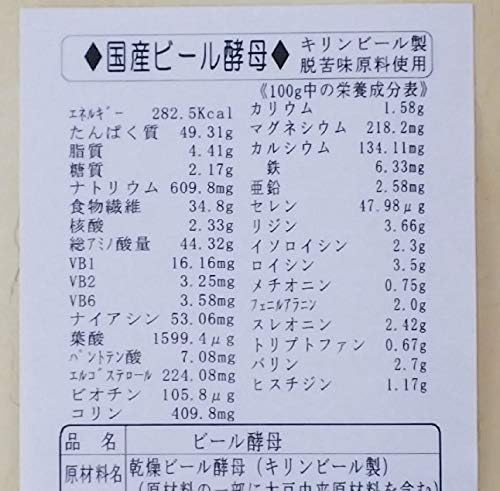 ◆国産ビール酵母◆
キリンビール製
脱苦味原料使用
《100g中の栄養成分表》
ｴﾈﾙｷﾞｰ 282.5Kcal
たんぱく質 49.31g
脂質 4.41g
糖質 2.17g
ナトリウム 609.8mg
食物繊維 34.8g
核酸 2.33g
総ｱﾐﾉ酸量 44.32g
VB1 16.16mg
VB2 3.25mg
VB6 3.58mg
ナイアシン 53.06mg
葉酸 1599.4μg
ﾊﾟﾝﾄﾃﾝ酸 7.08mg
ｴﾙｺﾞｽﾃﾛｰﾙ 224.08mg
ビオチン 105.8μg
コリン 409.8mg
カリウム 1.58g
マグネシウム 218.2mg
カルシウム 134.11mg
鉄 6.33mg
亜鉛 2.58mg
セレン 47.98μg
リジン 3.66g
イソロイシン 2.3g
ロイシン 3.5g
メチオニン 0.75g
ﾌｪﾆﾙｱﾗﾆﾝ 2.0g
スレオニン 2.42g
トリプトファン 0.67g
バリン 2.7g
ヒスチジン 1.17g
品名 ビール酵母
原材料名 乾燥ビール酵母（キリンビール製）
（原材料の一部に大豆由来原材料を含む）